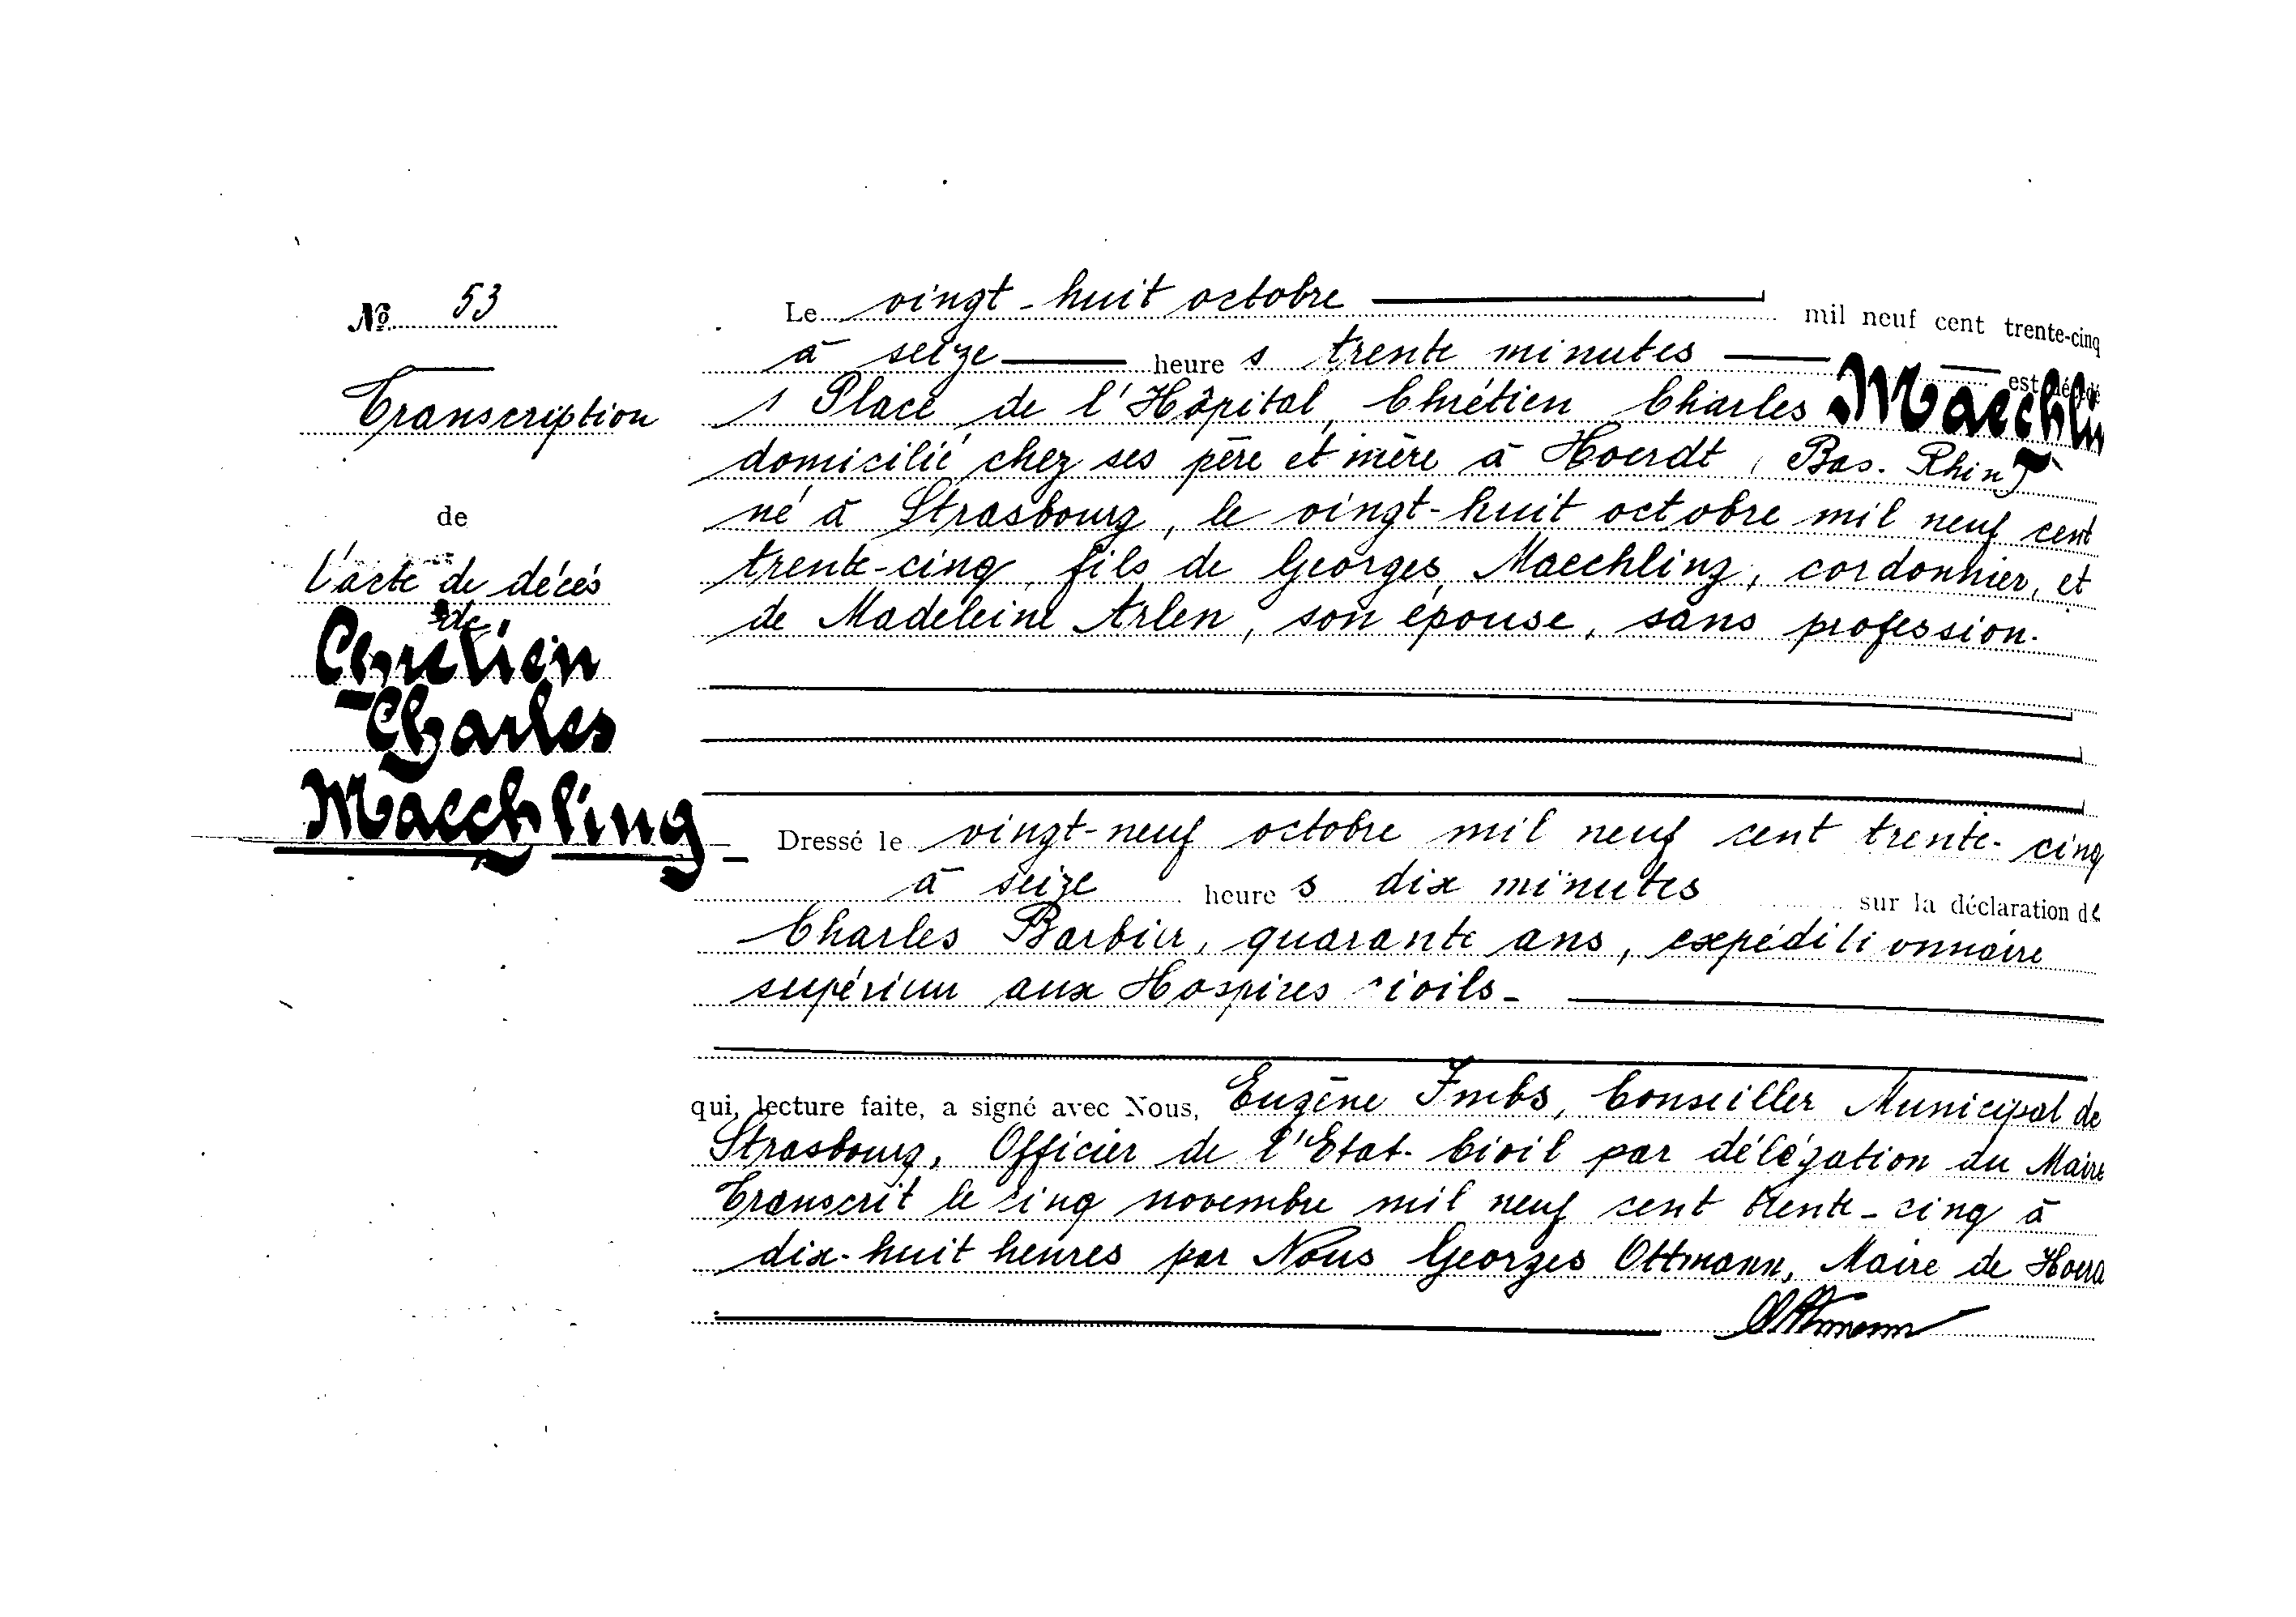 No 53
Transcription
de
l'acte de décès
de
Chrétien
Charles
Maechling
Le vingt-huit octobre mil neuf cent trente-cinq
à seize heure s trente minutes est décédé
1 Place de l'Hôpital, Chrétien Charles Maechlin
domicilié chez ses père et mère à Hoerdt (Bas-Rhin)
né à Strasbourg, le vingt-huit octobre mil neuf cent
trente-cinq, fils de Georges Maechling, cordonnier, et
de Madeleine Arlen, son épouse, sans profession.
Dressé le vingt-neuf octobre mil neuf cent trente-cinq
à seize heure s dix minutes sur la déclaration de
Charles Barbier, quarante ans, expéditionnaire
supérieur aux Hospices civils-
qui, lecture faite, a signé avec Nous, Eugène Imbs, Conseiller Municipal de
Strasbourg, Officier de l'Etat-Civil par délégation du Maire
Transcrit le cinq novembre mil neuf cent trente-cinq à
dix-huit heures par Nous Georges Ottmann, Maire de Hoerd
Ottmann